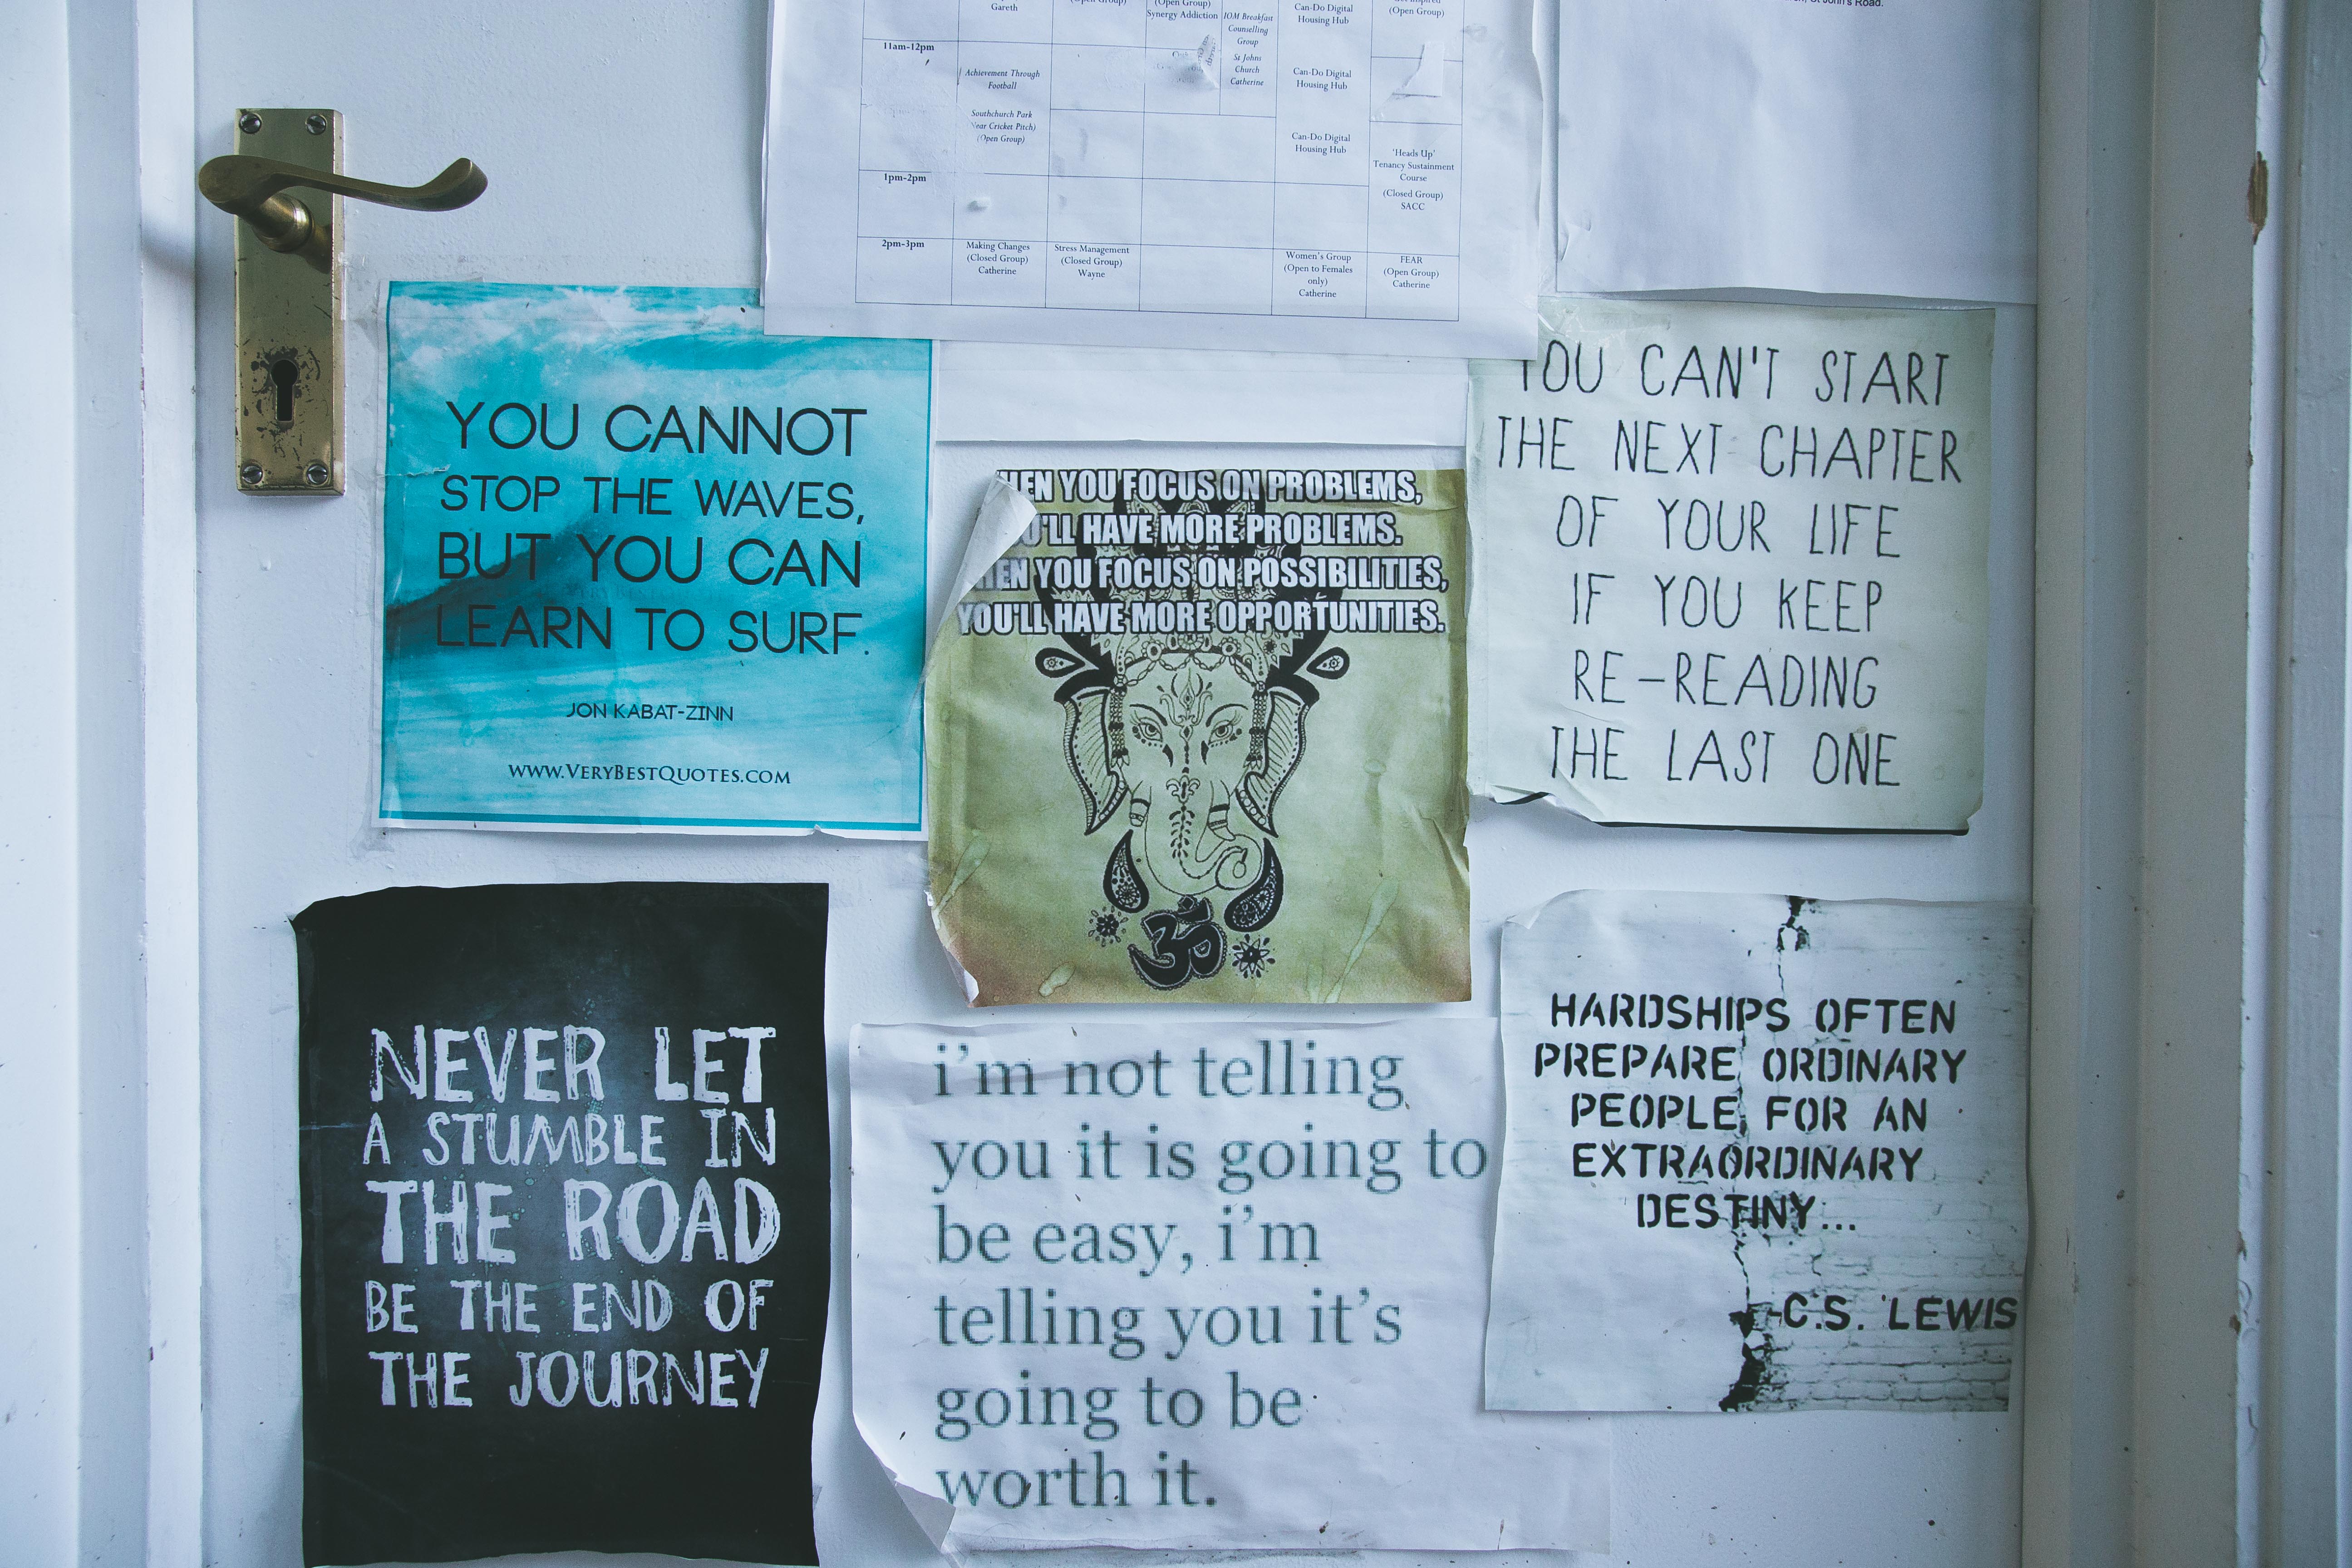 Gareth
(Open Group)
Synergy Addiction
IOM Breakfast
Counselling
Group
St Johns
Church
Catherine
Can-Do Digital
Housing Hub
(Open Group)
St John's Road.
11am-12pm
Achievement Through
Football
Southchurch Park
Near Cricket Pitch)
(Open Group)
Can-Do Digital
Housing Hub
Can-Do Digital
Housing Hub
'Heads Up'
Tenancy Sustainment
Course
(Closed Group)
SACC
1pm-2pm
2pm-3pm
Making Changes
(Closed Group)
Catherine
Stress Management
(Closed Group)
Wayne
Women's Group
(Open to Females
only)
Catherine
FEAR
(Open Group)
Catherine
YOU CANNOT
STOP THE WAVES,
BUT YOU CAN
LEARN TO SURF.
JON KABAT-ZINN
WWW.VERYBESTQUOTES.COM
HEN YOU FOCUS ON PROBLEMS,
U'LL HAVE MORE PROBLEMS.
HEN YOU FOCUS ON POSSIBILITIES,
YOU'LL HAVE MORE OPPORTUNITIES.
ॐ
YOU CAN'T START
THE NEXT CHAPTER
OF YOUR LIFE
IF YOU KEEP
RE-READING
THE LAST ONE
NEVER LET
A STUMBLE IN
THE ROAD
BE THE END OF
THE JOURNEY
i'm not telling
you it is going to
be easy, i'm
telling you it's
going to be
worth it.
HARDSHIPS OFTEN
PREPARE ORDINARY
PEOPLE FOR AN
EXTRAORDINARY
DESTINY...
-C.S. LEWIS